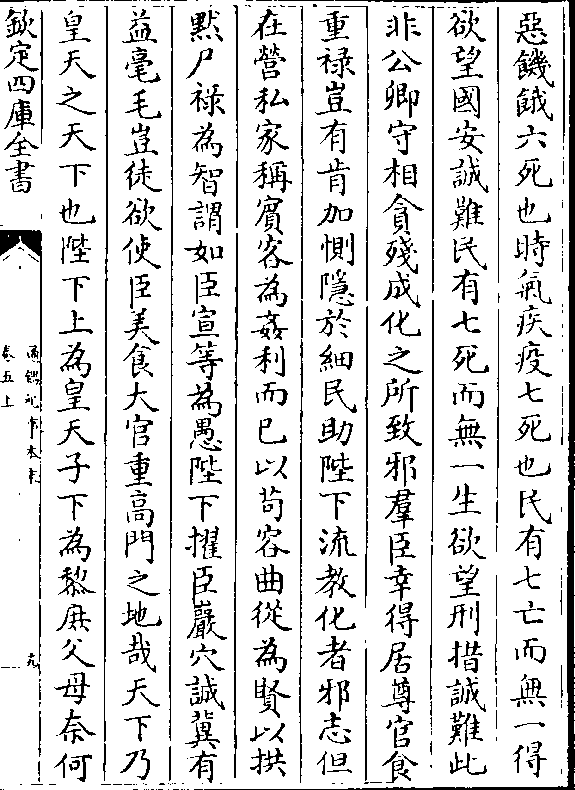 惡饑餓六死也時氣疾疫七死也民有七亡而無一得
欲望國安誠難民有七死而無一生欲望刑措誠難此
非公卿守相貪殘成化之所致邪羣臣幸得居尊官食
重祿豈有肯加惻隱於細民助陛下流教化者邪志但
在營私家稱賓客為姦利而已以苟容曲從為賢以拱
黙尸祿為智謂如臣宣等為愚陛下擢臣巖穴誠冀有
益毫毛豈徒欲使臣美食大官重高門之地哉天下乃
皇天之天下也陛下上為皇天子下為黎庶父母奈何
欽定四庫全書
通鑑紀事本末
卷五上
九